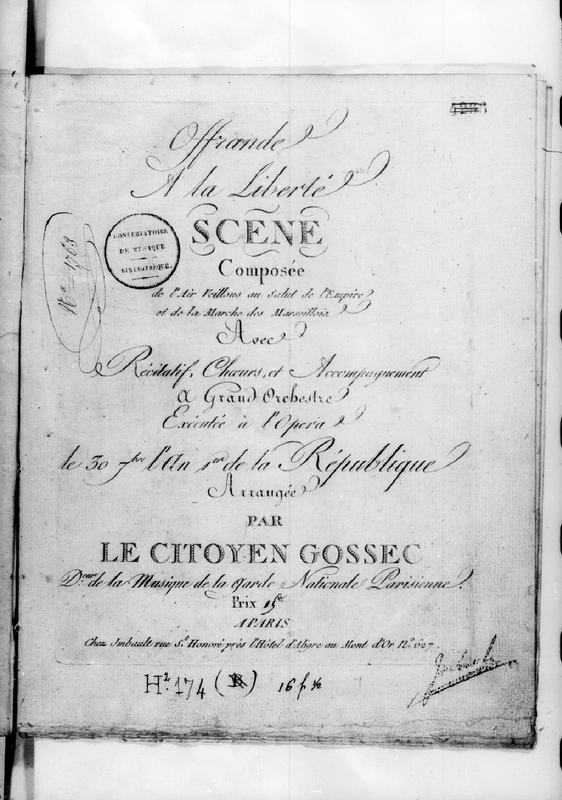 Offrande
A la Liberté
SCENE
Composée
de l'Air Veillons au Salut de l'Empire
et de la Marche des Marseillois
Avec
Récitatif, Choeurs, et Accompagnement
a Grand Orchestre
Exécutée à l'Opera
le 30 7bre l'An 1er de la République
Arrangée
PAR
LE CITOYEN GOSSEC
Deur de la Musique de la Garde Nationale Parisienne.
Prix 15#
A PARIS
Chez Imbault rue St. Honoré près l'Hôtel d'Aligre au Mont d'Or No. 627
CONSERVATOIRE
DE MUSIQUE
BIBLIOTHÈQUE.
No 1768
H2. 174 (R) 16 f ½